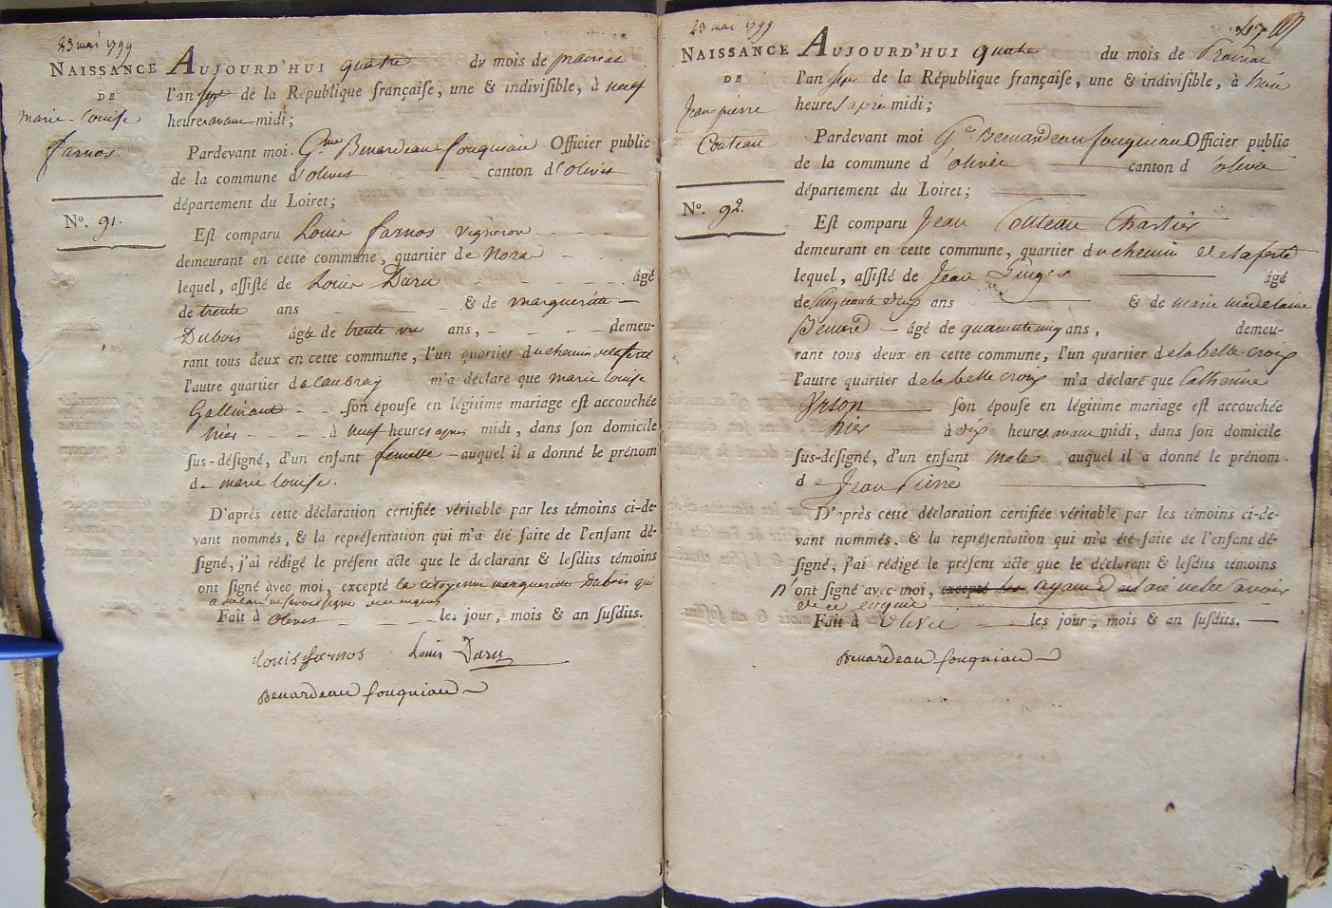 23 mai 1799
NAISSANCE
DE
marie-Louise
farnos
N°. 91.
AUJOURD'HUI quatre du mois de prairial
l'an sept de la République françaiſe, une & indiviſible, à neuf
heures avant midi;
Pardevant moi Gme Benardeau fouquiau Officier public
de la commune d'olivet canton d'olivet
département du Loiret;
Eſt comparu Louis farnos vigneron
demeurant en cette commune, quartier de
lequel, aſſiſté de Louis Daru âgé
de trente ans & de margueritte
Dubois âgée de trente ans, demeu-
rant tous deux en cette commune, l'un quartier du chemin de la ferté
l'autre quartier de caubray m'a déclaré que marie louise
son épouſe en légitime mariage eſt accouchée
hier à neuf heures après midi, dans ſon domicile
ſus-déſigné, d'un enfant femelle auquel il a donné le prénom
de marie louise.
D'après cette déclaration certifiée véritable par les témoins ci-de-
vant nommés, & la repréſentation qui m'a été faite de l'enfant dé-
ſigné, j'ai rédigé le préſent acte que le déclarant & leſdits témoins
ont ſigné avec moi, excepté la citoyenne margueritte Dubois qui
a déclaré ne savoir signer de ce enquis
Fait à olivet les jour, mois & an ſuſdits.
Louis farnos Louis Daru
Benardeau fouquiau
23 mai 1799
NAISSANCE
DE
Jean pierre
Couteau
N°. 92.
AUJOURD'HUI quatre du mois de Prairial
l'an sept de la République françaiſe, une & indiviſible, à
heures après midi;
Pardevant moi Gme Benardeau fouquiau Officier public
de la commune d'olivet canton d'olivet
département du Loiret;
Eſt comparu Jean Couteau Chartier
demeurant en cette commune, quartier du chemin de la ferté
lequel, aſſiſté de Jean âgé
de cinquante dix ans & de marie madelaine
Benard âgé de quarante cinq ans, demeu-
rant tous deux en cette commune, l'un quartier de la belle croix
l'autre quartier de la belle croix m'a déclaré que Catherine
ſon épouſe en légitime mariage eſt accouchée
hier à dix heures avant midi, dans ſon domicile
ſus-déſigné, d'un enfant male auquel il a donné le prénom
de Jean Pierre
D'après cette déclaration certifiée véritable par les témoins ci-de-
vant nommés, & la repréſentation qui m'a été faite de l'enfant dé-
ſigné, j'ai rédigé le préſent acte que le déclarant & leſdits témoins
n'ont ſigné avec moi, excepté les ayant déclaré ne le savoir
de ce enquis
Fait à olivet les jour, mois & an ſuſdits.
Benardeau fouquiau